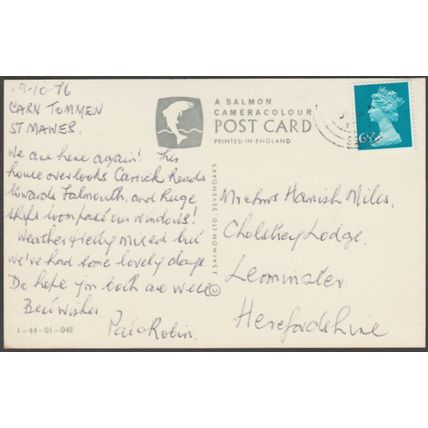 9-10-76
CARN TOMMEN
ST MAWES.
We are here again! This
house overlooks Carrick Roads
towards Falmouth, and huge
ships loom past our windows!
Weather pretty mixed but
we've had some lovely days.
Do hope you both are well
Best wishes
Pat & Robin.
1-44-01-04E
A SALMON
CAMERACOLOUR
POST CARD
PRINTED IN ENGLAND
© J. SALMON LTD. SEVENOAKS
Mr & Mrs Hamish Miles,
Lodge,
Leominster,
Herefordshire